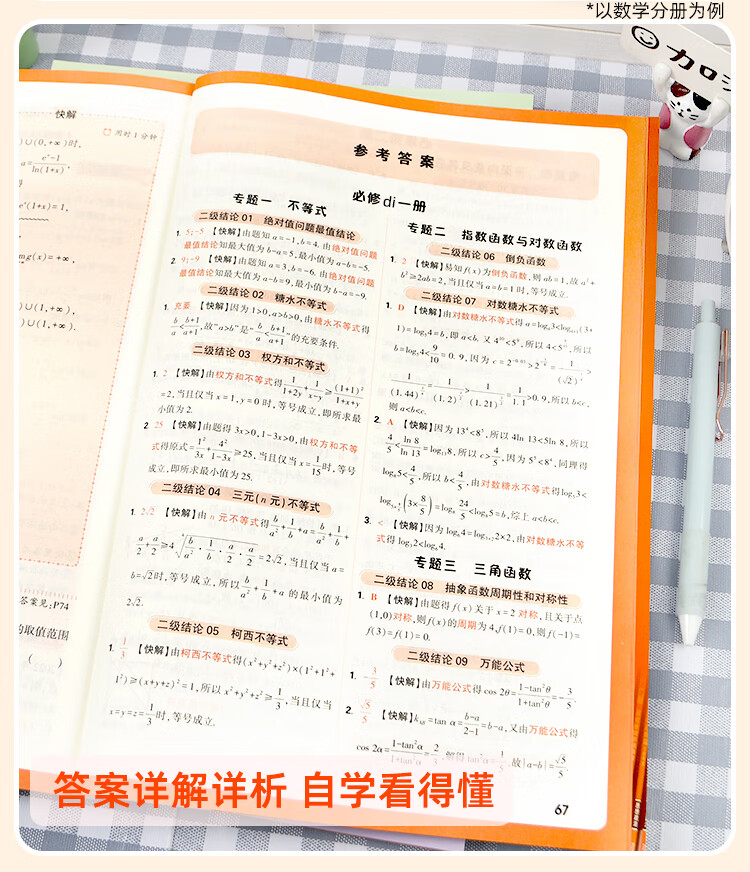 *以数学分册为例
カロ
快解
用时1分钟
)∪(0,+∞)时,
a=(e^x-1)/ln(1+x),
e^x(1+x)=1,
mg(x)=+∞,
)∪(1,+∞)
)∪(1,+∞).
答案见:P74
的取值范围
( )
参考答案
必修di一册
专题一 不等式
二级结论01 绝对值问题最值结论
1. 5;-5 【快解】由题知a=-1,b=4,由绝对值问题
最值结论知最大值为b-a=5,最小值为a-b=-5.
2. 9;-9 【快解】由题知a=3,b=-6,由绝对值问题
最值结论知最大值为a-b=9,最小值为b-a=-9.
二级结论02 糖水不等式
1. 充要 【快解】因为1>0,a>b>0,由糖水不等式得
b/a<(b+1)/(a+1),故“a>b”是“b/a<(b+1)/(a+1)”的充要条件.
二级结论03 权方和不等式
1. 2 【快解】由权方和不等式得1/(1+2y)+1/(x-y)≥(1+1)²/(1+x+y)
=2,当且仅当x=1,y=0时,等号成立,即所求最
小值为2.
2. 25 【快解】由题得3x>0,1-3x>0,由权方和不等
式得原式=1²/3x+4²/(1-3x)≥25,当且仅当x=1/15时,等号
成立,即所求最小值为25.
二级结论04 三元(n元)不等式
1. 2√2 【快解】由n元不等式得b/a²+1/b+a=b/a²+1/b+
a/2+a/2≥4⁴√(b/a²·1/b·a/2·a/2)=2√2,当且仅当a=
b=√2时,等号成立,所以b/a²+1/b+a的最小值为
2√2.
二级结论05 柯西不等式
1. 1/3 【快解】由柯西不等式得(x²+y²+z²)×(1²+1²+
1²)≥(x+y+z)²=1,所以x²+y²+z²≥1/3,当且仅当
x=y=z=1/3时,等号成立.
专题二 指数函数与对数函数
二级结论06 倒负函数
1. 2 【快解】易知f(x)为倒负函数,则ab=1,故a²+
b²≥2ab=2,当且仅当a=b=1时,等号成立.
二级结论07 对数糖水不等式
1. D 【快解】由对数糖水不等式得a=log₄3<log₍₄₊₁₎(3+
1)=log₅4=b,即a<b.
b=log₅4<9/10=0.9,
>0.9,所以b<c,
则a<b<c.
2. A 【快解】因为13⁴<8⁵,所以4ln 13<5ln 8,所以
4/5<ln 8/ln 13=log₁₃8,所以c>4/5,因为5⁵<8⁴,同理得
log₈5<4/5,所以b<4/5,由对数糖水不等式得log₅3<
=log₈24/5<log₈5=b,综上a<b<c.
3. < 【快解】
由对数糖水不等
式得log₃2<log₆4.
专题三 三角函数
二级结论08 抽象函数周期性和对称性
1. B 【快解】由题得f(x)关于x=2对称,且关于点
(1,0)对称,则f(x)的周期为4,f(1)=0,则f(-1)=
f(3)=f(1)=0.
二级结论09 万能公式
1. -3/5 【快解】由万能公式得cos 2θ=(1-tan²θ)/(1+tan²θ)=-3/5.
2. √5/5 【快解】k_AB=tan α=(b-a)/(2-1)=b-a,又由万能公式得
cos 2α=(1-tan²α)/(1+tan²α)=2/3,解得tan²α=1/5,故|a-b|=√5/5.
67
答案详解详析 自学看得懂